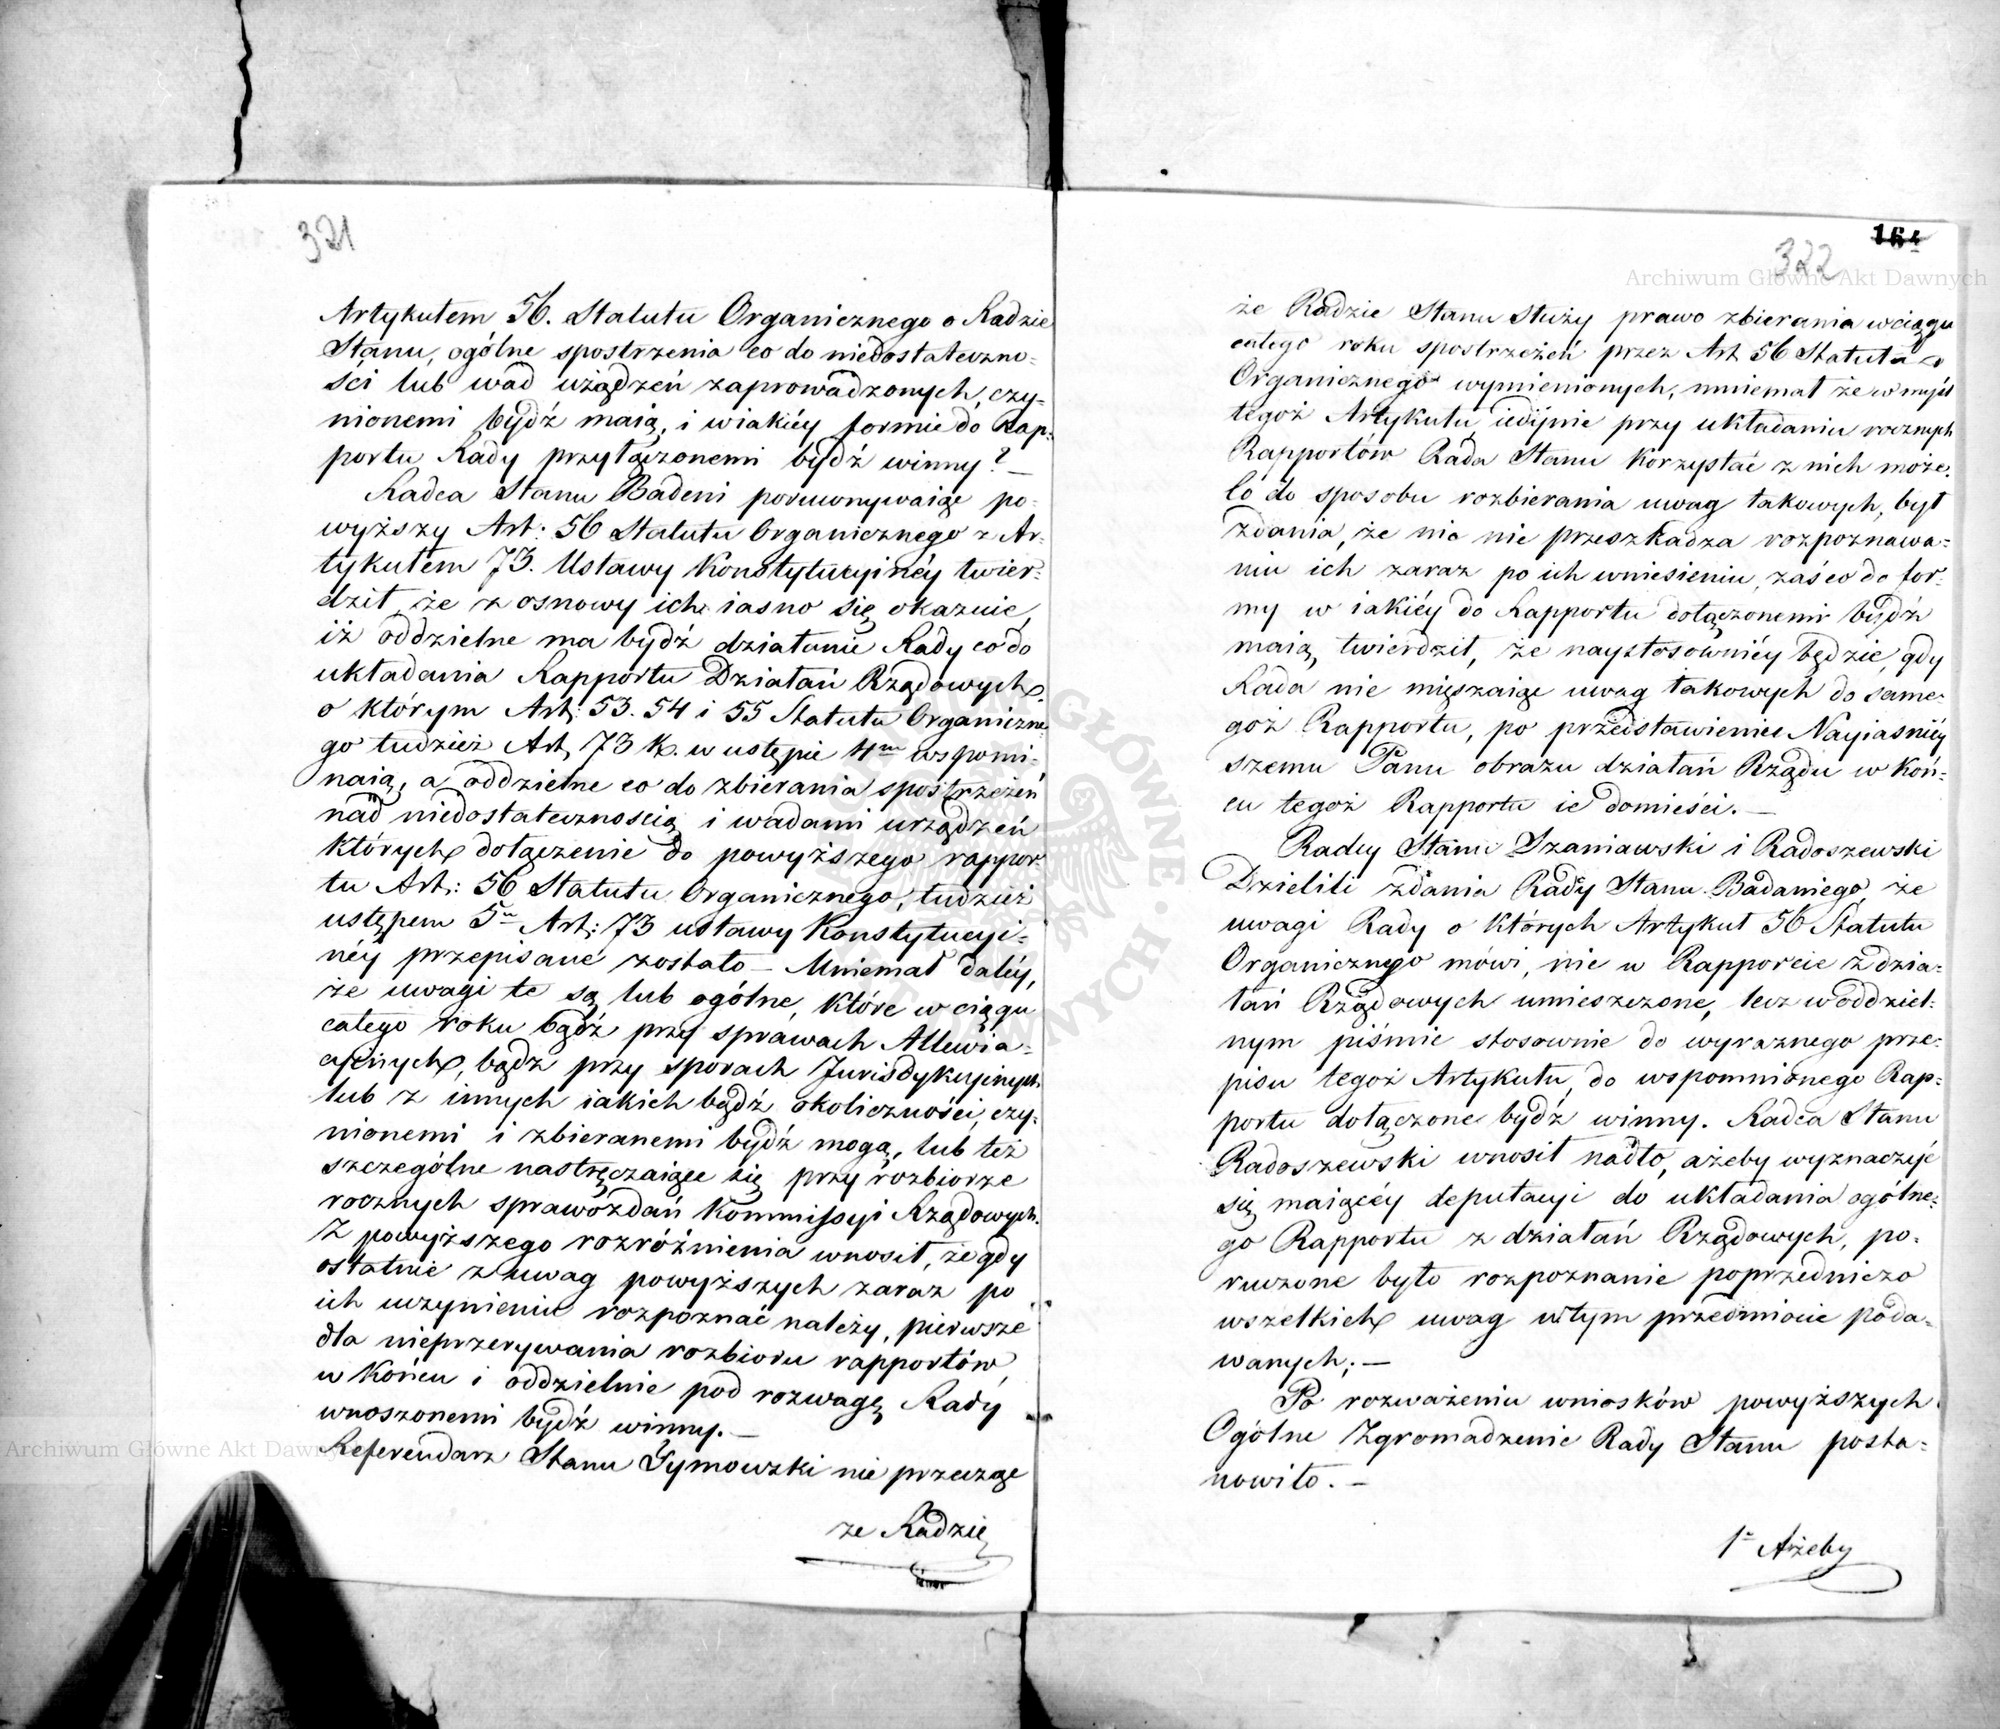 321
Artykułem 56. Statutu Organicznego o Radzie
Stanu, ogólne spostrzenia co do niedostateczno-
ści lub wad użądzeń zaprowadzonych, czy-
nionemi bydź maią, i wiakiéy formie do Rap-
portu Rady przyłączonemi bydź winny? —
Radca Stanu Badeni porównywaiąc po-
wyższy Art: 56 Statutu Organicznego z Ar-
tykułem 73. Ustawy Konstytucyinéy twier-
dził, że z osnowy ich iasno się okazuie,
iż oddzielne ma bydź działanie Rady co do
układania Rapportu Działań Rządowych,
o którym Art: 53. 54 i 55 Statutu Organiczne-
go tudzież Art, 73 K. w ustępie 4m wspomi-
naią, a oddzielne co do zbierania spostrzeżeń
nad niedostatecznością i wadami urządzeń
których dołączenie do powyższego rappor-
tu Art,: 56 Statutu Organicznego, tudzież
ustępem 5m Art: 73 ustawy Konstytucyi-
néy przepisané zostało — Mniemał daléy,
że uwagi te są lub ogólne, które w ciągu
całego roku bądź przy sprawach Attewia-
cyinych, bądz przy sporach Jurisdykcyinych
lub z innych iakich bądź okoliczności, czy-
nionemi i zbieranemi bydź mogą, lub też
szczególne nastręczaiące się przy rozbiorze
rocznych sprawozdań Kommissyi Rządowych.
Z powyższego rozróżnienia wnosił, że gdy
ostatnie z uwag powyższych zaraz po
ich uczynieniu rozpoznać należy, pierwsze
dla nieprzerywania rozbioru rapportów,
w końcu i oddzielnie pod rozwagę Rady
wnoszonemi bydź winny. —
Referendarz Stanu Tymowski nie przecząc
że Radzie
164
322
że Radzie Stanu Służy prawo zbierania w ciągu
całego roku spostrzeżeń przez Art 56 Statutu
Organicznego wymienionych, mniemał że w myśl
tegoż Artykułu iedynie przy układaniu rocznych
Rapportów Rada Stanu korzystać z nich może.
Co do sposobu rozbierania uwag takowych, był
zdania, że nic nie przeszkadza rozpoznawa-
niu ich zaraz po ich wniesieniu, zaś co do for-
my w iakiéy do Rapportu dołączonemi bydź
maią, twierdził, że naystosowniéy będzie, gdy
Rada nie mięszaiąc uwag takowych do same-
goż Rapportu, po przedstawieniu Nayiasniéy
szemu Panu obrazu działań Rządu w koń-
cu tegoż Rapportu ie domieści. —
Radcy Stanu Szaniawski i Radoszewski
Dzielili zdania Rady Stanu Badaniego, że
uwagi Rady o których Artykuł 56 Statutu
Organicznego mówi, nie w Rapporcie z dzia-
łań Rządowych umieszczone, lecz w oddziel-
nym piśmie stosownie do wyraznego prze-
pisu tegoż Artykułu, do wspomnionego Rap-
portu dołączone bydź winny. Radca Stanu
Radoszewski wnosił nadto, ażeby wyznaczyć
się maiącéy deputacyi do układania ogólne-
go Rapportu z działań Rządowych, po-
ruczone było rozpoznanie poprzedniczo
wszelkich uwag w tym przedmiocie poda-
wanych; —
Po rozważeniu wniosków powyższych
Ogólne Zgromadzenie Rady Stanu posta-
nowiło. —
1e Ażeby
Archiwum Główne Akt Dawnych
Archiwum Główne Akt Dawnych